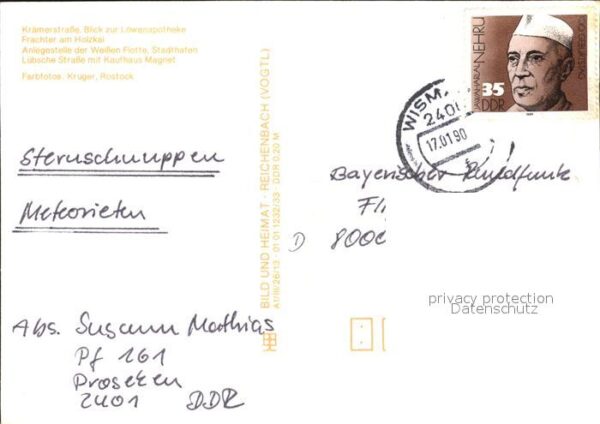 Krämerstraße, Blick zur Löwenapotheke
Frachter am Holzkai
Anlegestelle der Weißen Flotte, Stadthafen
Lübsche Straße mit Kaufhaus Magnet
Farbfotos: Krüger, Rostock
Sternschnuppen
Meteorieten
Abs. Susann Matthias
Pf 161
Proseken
2401 DDR
BILD UND HEIMAT · REICHENBACH (VOGTL)
A1/III/26/13 · 01 01 1232/33 · DDR 0,20 M
JAWAHARLAL NEHRU
35
DDR
GEBURTSTAG
WISM
2400
17.01.90
Bayerischer Rundfunk
8000
D
privacy protection
Datenschutz